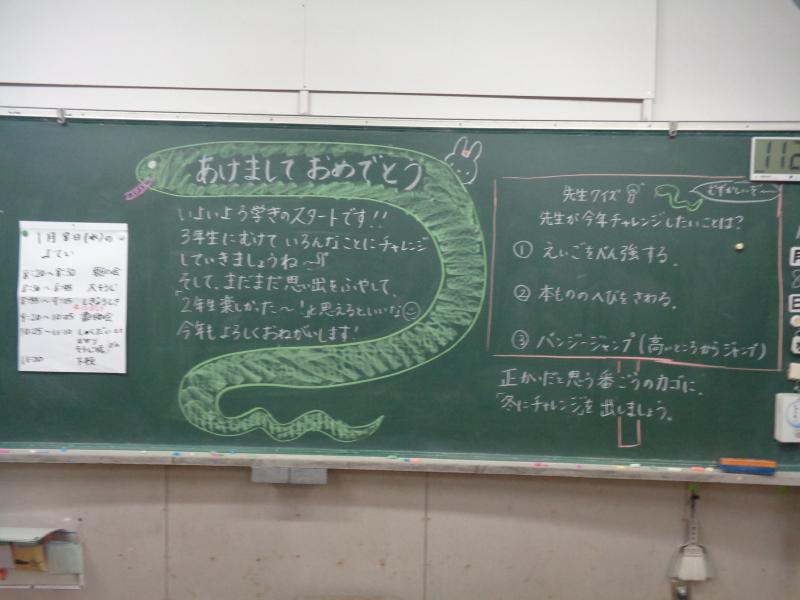 あけまして おめでとう
いよいよう学きのスタートです!!
3年生にむけて いろんなことにチャレンジ
していきましょうね〜
そして、まだまだ思い出をふやして、
「2年生楽しかった〜!」と思えるといいな
今年もよろしくおねがいします!
1月8日(水)の
よてい
8:20〜8:30
8:30〜8:45 大そうじ
8:45〜9:05
9:20〜10:05
10:25〜11:10
11:30 下校
先生クイズ
むずかしいぞ〜
先生が今年チャレンジしたいことは?
① えいごをべん強する。
② 本もののへびをさわる。
③ バンジージャンプ(高いところからジャンプ)
正かいだと思う番ごうのカゴに、
「冬にチャレンジ」を出しましょう。
112
月
8
日